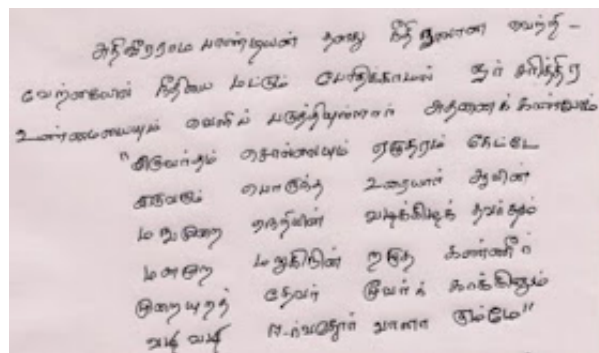 அதிவீரராம பாண்டியன் தனது நீதி நூலான வெற்றி -
வேற்கையில் நீதியை மட்டும் போதிக்காமல் ஓர் சரித்திர
உண்மையையும் வெளிப் படுத்தியுள்ளார் அதனைக் காண்போம்
"இருவர்தம் சொல்லையும் எழுதரம் கேட்டே
இருவரும் பொருந்த உரையார் ஆயின்
மனுமுறை நெறியின் வழக்கிழந் தவர்தாம்
மனமுற மறுகிநின் றழுத கண்ணீர்
முறையுறத் தேவர் மூவர் காக்கினும்
வழி வழி ஈர்வதோர் வாளா கும்மே"